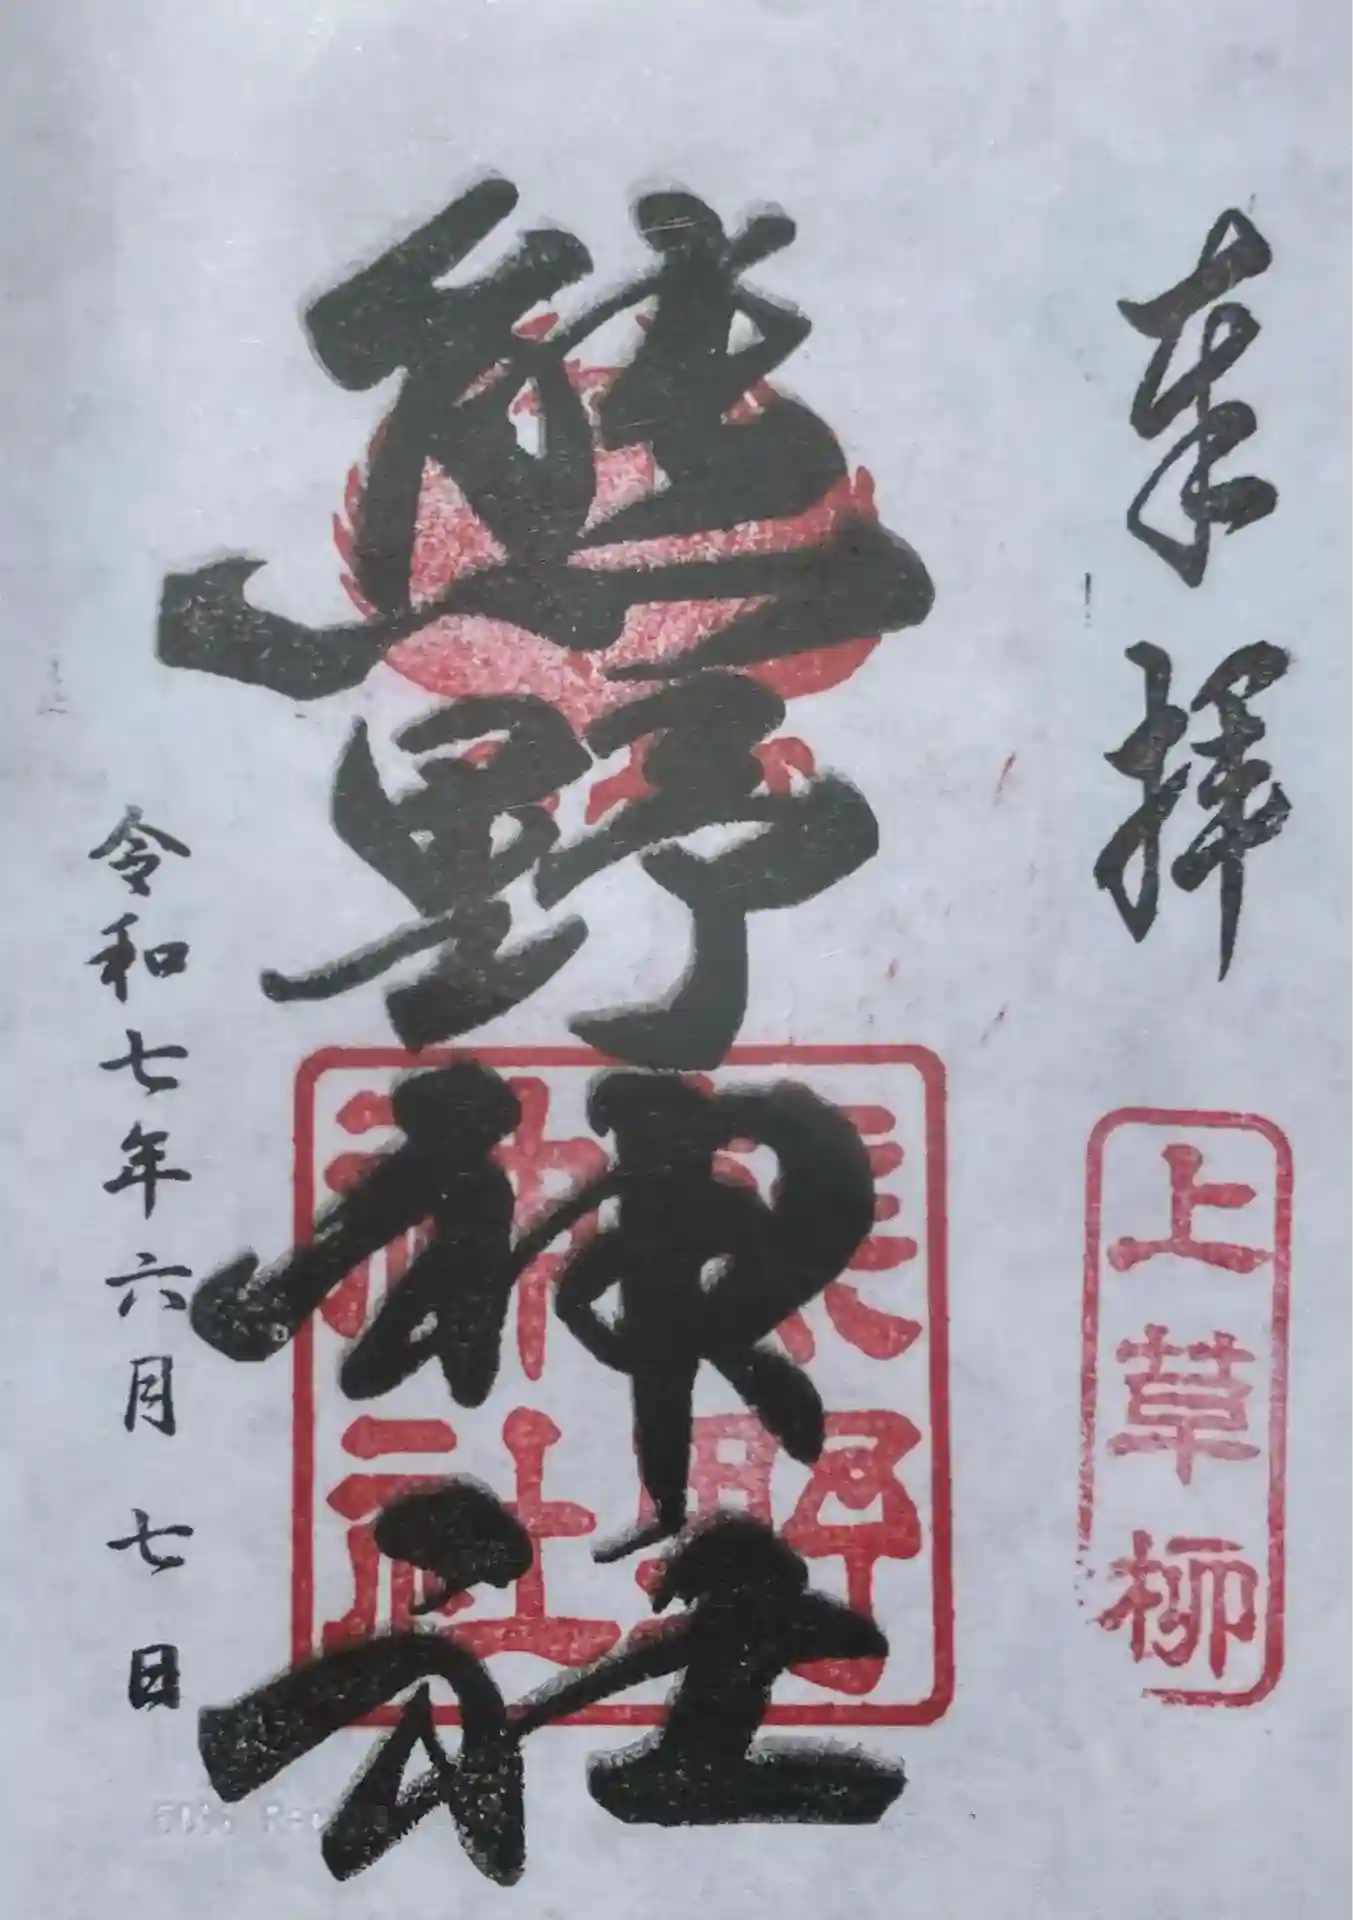 奉拝
上草柳
熊野神社
熊野
神社
令和七年六月七日